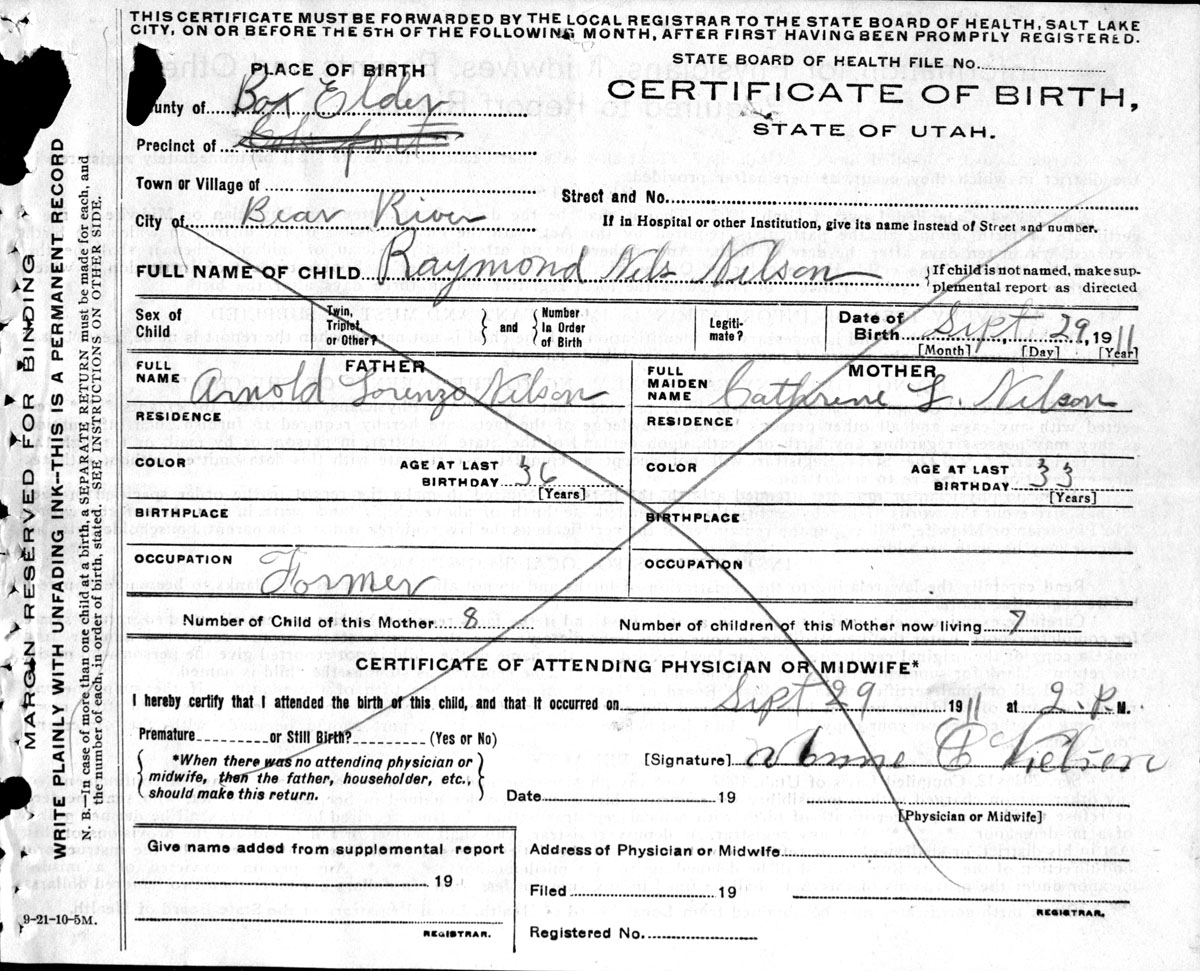 THIS CERTIFICATE MUST BE FORWARDED BY THE LOCAL REGISTRAR TO THE STATE BOARD OF HEALTH, SALT LAKE
CITY, ON OR BEFORE THE 5TH OF THE FOLLOWING MONTH, AFTER FIRST HAVING BEEN PROMPTLY REGISTERED.
STATE BOARD OF HEALTH FILE No.
PLACE OF BIRTH
CERTIFICATE OF BIRTH,
STATE OF UTAH.
ounty of Box Elder
Precinct of
Town or Village of
Street and No.
City of Bear River
If in Hospital or other Institution, give its name instead of Street and number.
FULL NAME OF CHILD Raymond Nils Nilson
If child is not named, make sup-
plemental report as directed
Sex of
Child
Twin,
Triplet,
or Other?
and
Number
In Order
of Birth
Legiti-
mate?
Date of
Birth Sept. 29, 1911
[Month] [Day] [Year]
FATHER
FULL
NAME Arnold Lorenzo Nilson
MOTHER
FULL
MAIDEN
NAME Cathrine L. Nilson
RESIDENCE
RESIDENCE
COLOR
AGE AT LAST
BIRTHDAY 36
[Years]
COLOR
AGE AT LAST
BIRTHDAY 33
[Years]
BIRTHPLACE
BIRTHPLACE
OCCUPATION
Former
OCCUPATION
Number of Child of this Mother 8
Number of children of this Mother now living 7
CERTIFICATE OF ATTENDING PHYSICIAN OR MIDWIFE*
I hereby certify that I attended the birth of this child, and that it occurred on Sept 29 1911 at 2 P. M.
Premature or Still Birth? (Yes or No)
*When there was no attending physician or
midwife, then the father, householder, etc.,
should make this return.
[Signature]
Date 19
[Physician or Midwife]
Give name added from supplemental report
19
REGISTRAR.
Address of Physician or Midwife
Filed 19
REGISTRAR.
Registered No.
9-21-10-5M.
MARGIN RESERVED FOR BINDING
WRITE PLAINLY WITH UNFADING INK—THIS IS A PERMANENT RECORD
N. B.—In case of more than one child at birth, a SEPARATE RETURN must be made for each, and
the number of each, in order of birth stated. SEE INSTRUCTIONS ON OTHER SIDE.